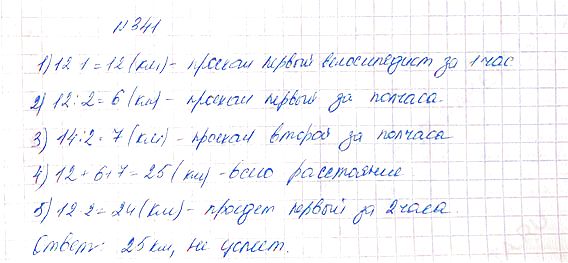 №341
1) 12·1=12 (км) - проехал первый велосипедист за 1 час
2) 12:2=6 (км) - проехал первый за полчаса.
3) 14:2=7 (км) - проехал второй за полчаса
4) 12+6+7=25 (км) - всего расстояние
5) 12·2=24 (км) - проедет первый за 2 часа.
Ответ: 25 км, не успеет.